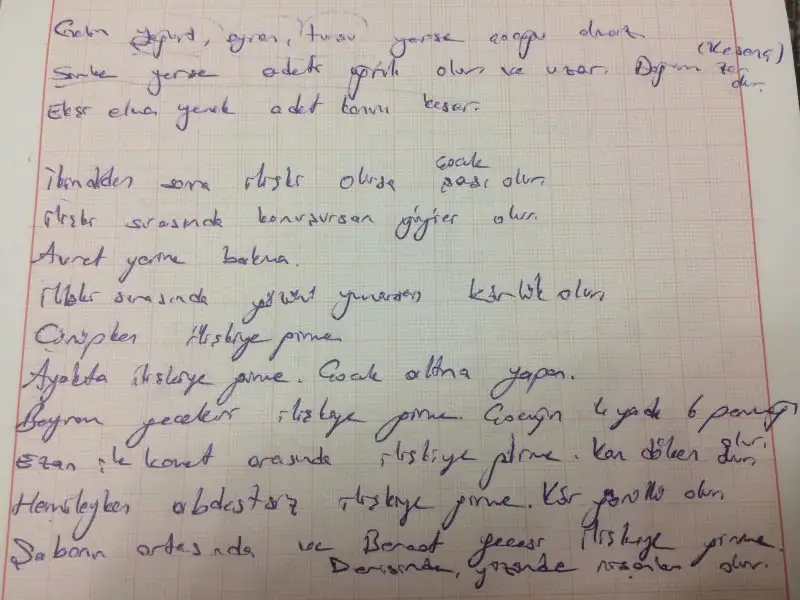 Gelin yoğurt, ayran, turşu yerse çocuğu olmaz
Sirke yerse adeti ağrılı olur ve uzar. Doğum zor olur. (Keseng)
Ekşi elma yemek adet kanını keser.
ikindiden sonra ilişki olursa çocuk şaşı olur.
ilişki sırasında konuşursan olur.
Avret yerine bakma.
ilişki sırasında yüzünü körlük olur.
Cünüpken ilişkiye girme.
Ayakta ilişkiye girme. Çocuk altına yapar.
Bayram geceleri ilişkiye girme. Çocuğun 4 yada 6 parmağı olur.
Ezan ile kamet arasında ilişkiye girme. Kan döken olur.
Hamileyken abdestsiz ilişkiye girme. Kör olur.
Şabanın ortasında ve Beraat gecesi ilişkiye girme.
Derisinde, yüzünde nişanlar olur.